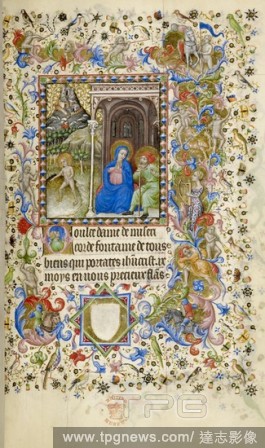 Doulce dame de miseri
corde fontaine de tous
biens qui portastes ihucrist .ix.
moys en uous precieux flans
TPG
www.tpgnews.com/ 達志影像